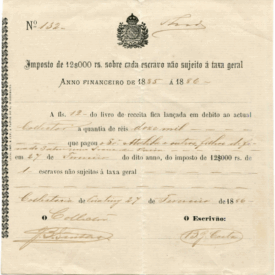 Nº 132
Imposto de 12$000 rs. sobre cada escravo não sujeito á taxa geral
ANNO FINANCEIRO DE 1885 á 1886
A fls. 12 do livro de receita fica lançada em debito ao actual
Collector a quantia de réis doze mil
que pagou o Sr.
em 27 de Janeiro do dito anno, do imposto de 12$000 rs. de
1 escravo não sujeito á taxa geral
Collectoria de 27 de Janeiro de 1886
O Collector O Escrivão:
Costa